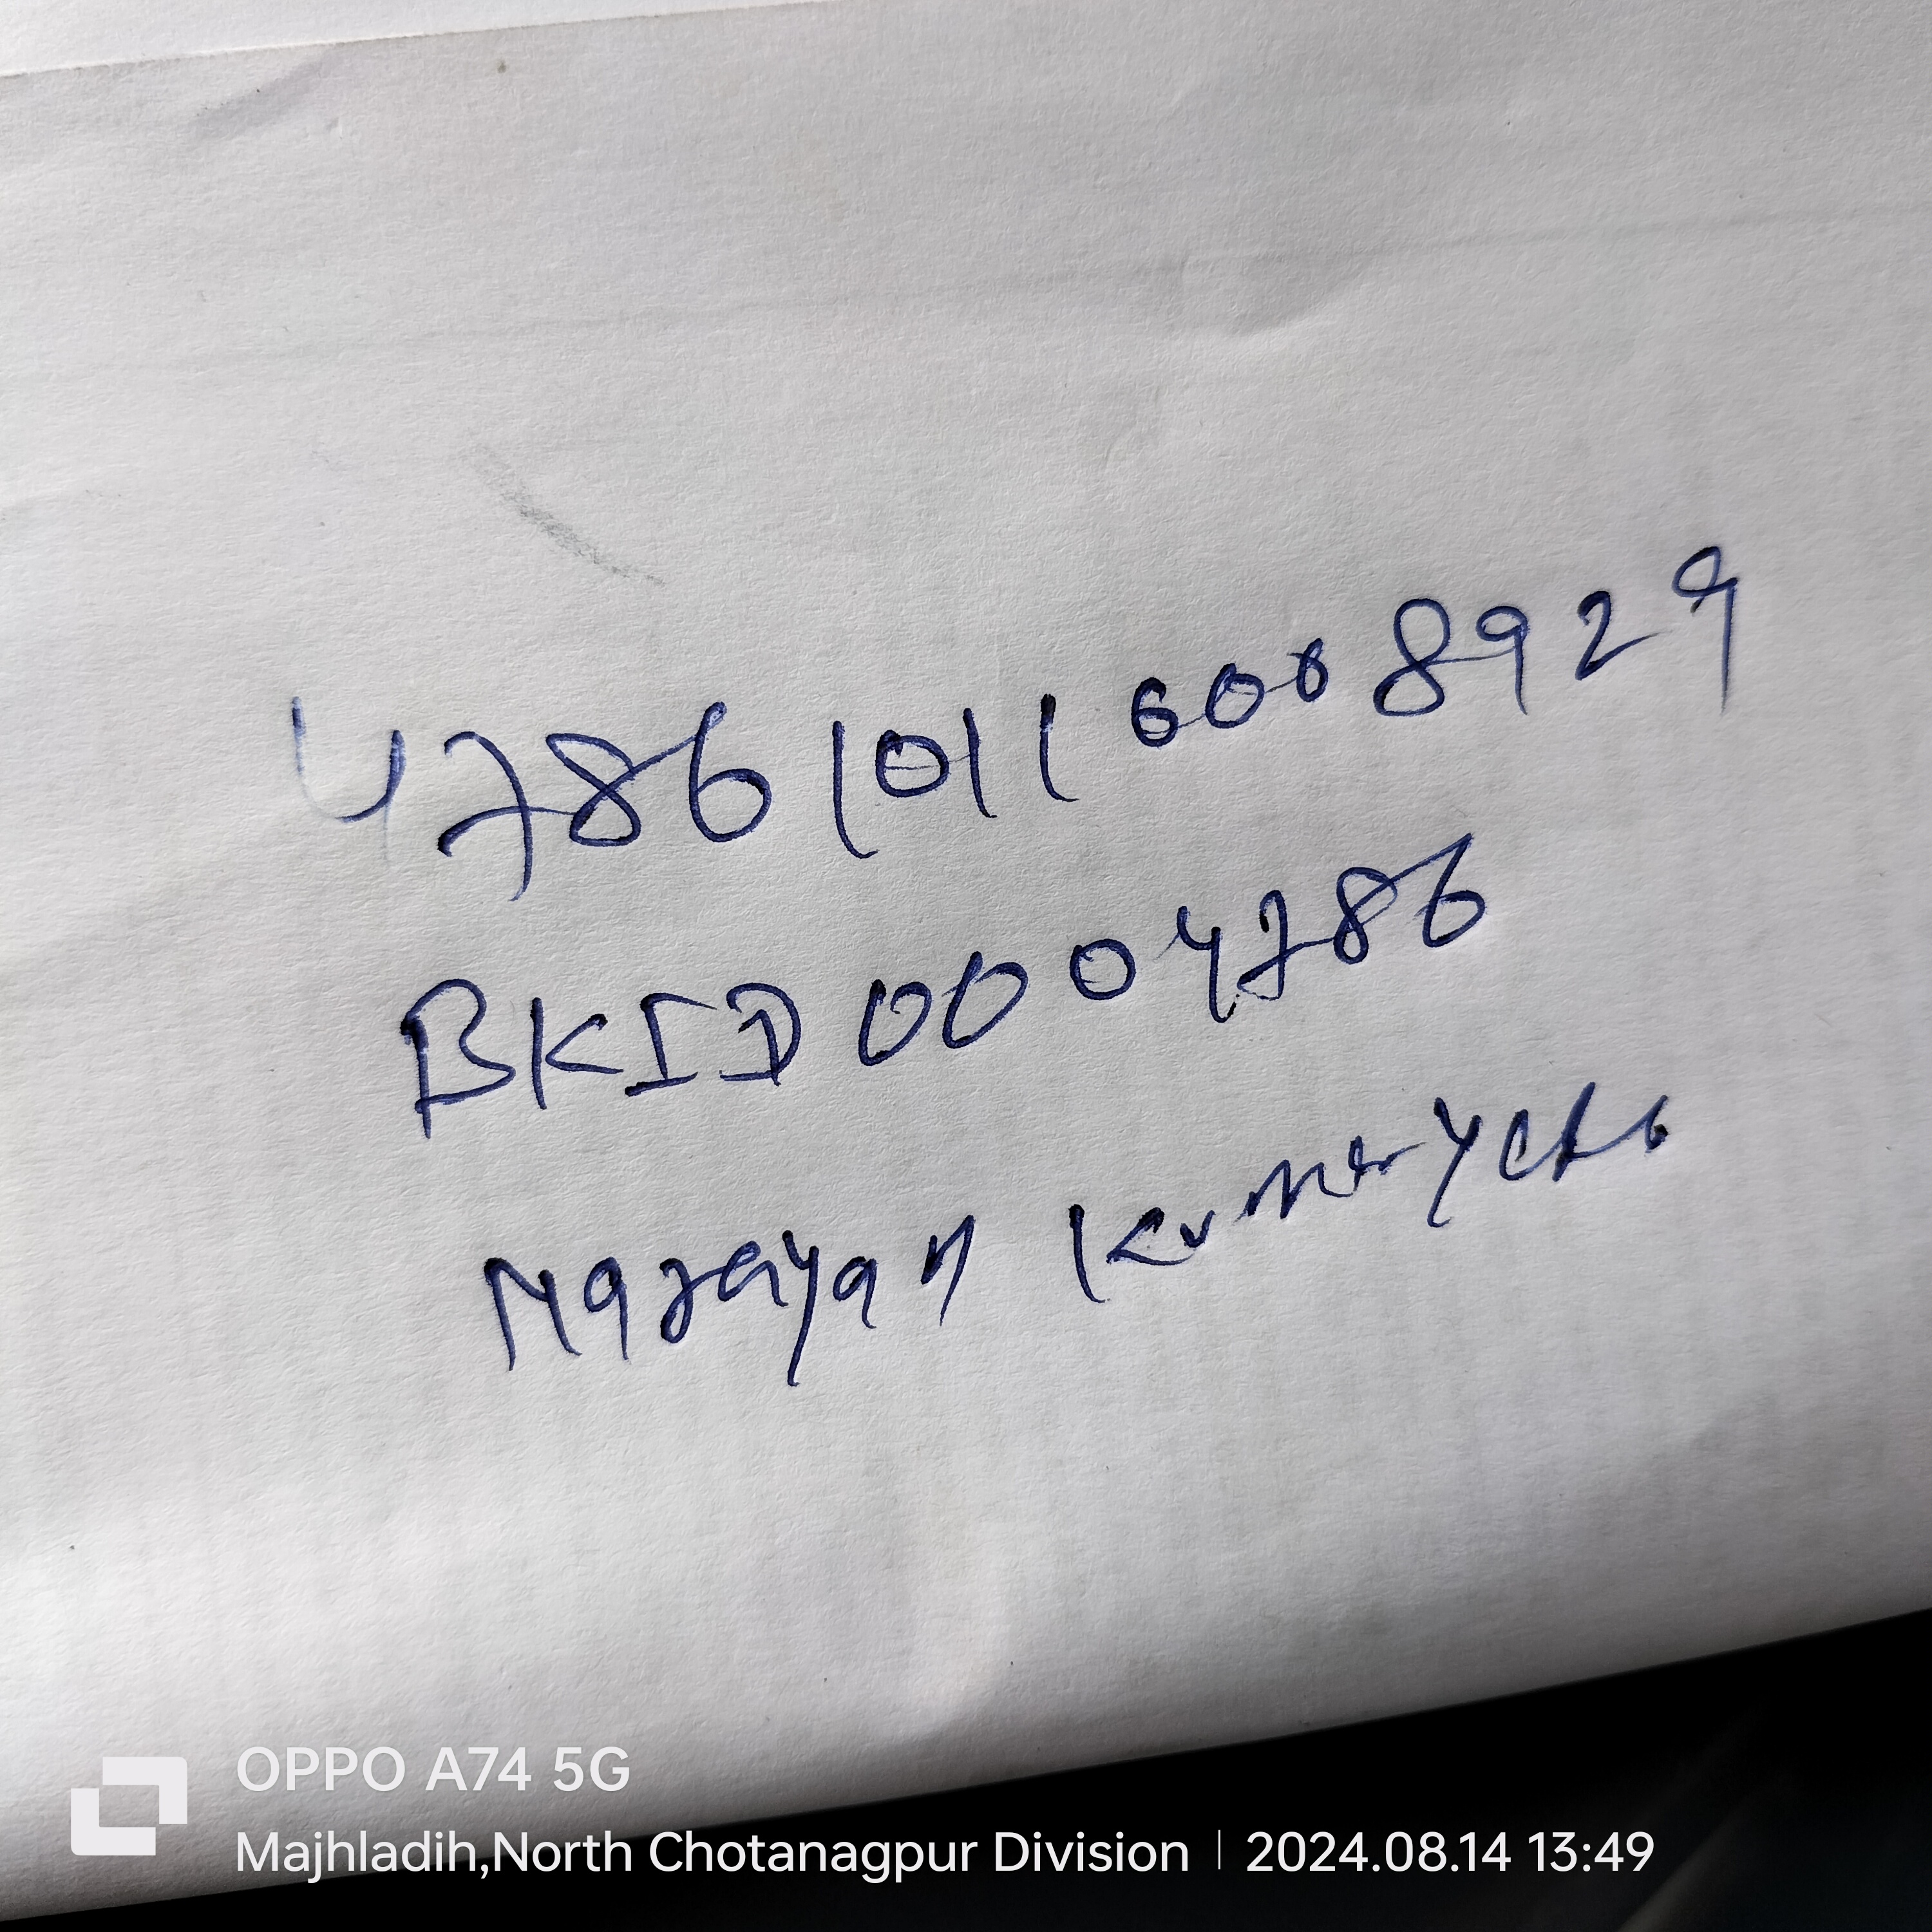 478610116008929
BKID0004786
Narayan Kumar
OPPO A74 5G
Majhladih,North Chotanagpur Division | 2024.08.14 13:49